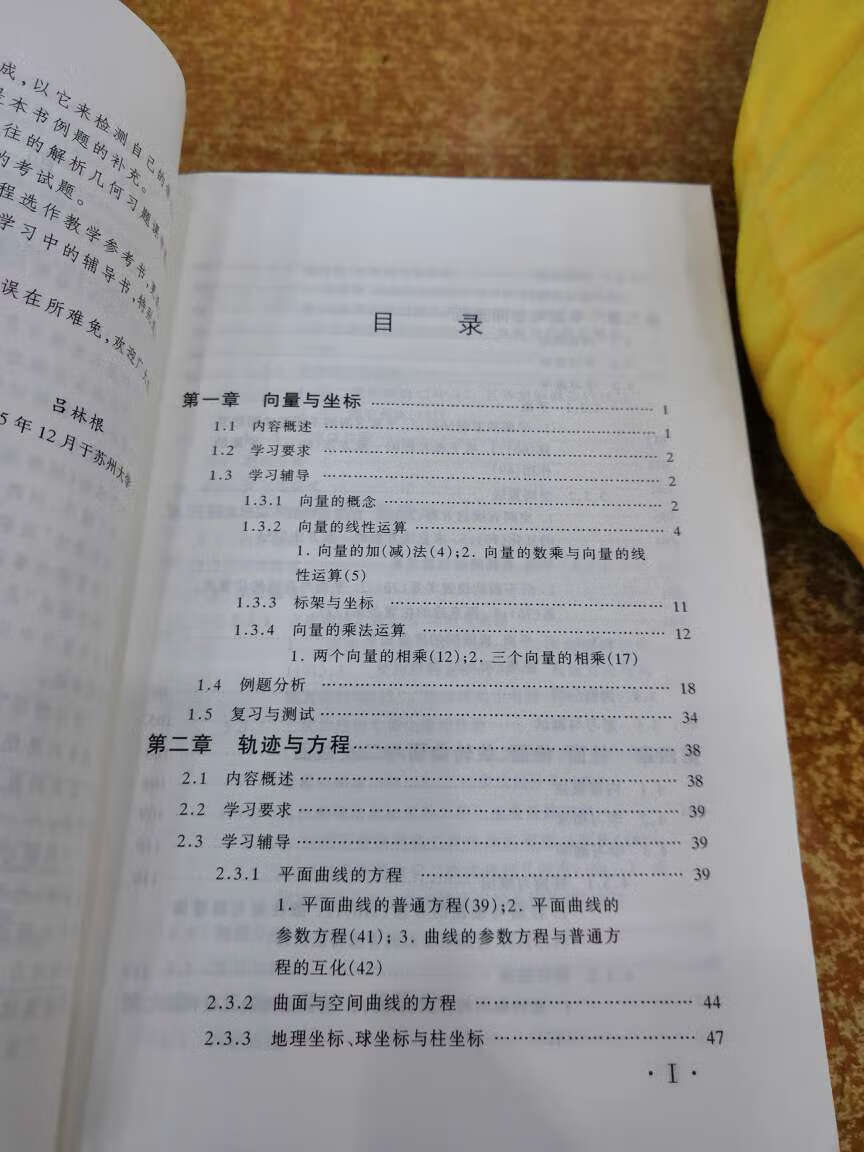 成,以它来检测自己的
是本书例题的补充。
往的解析几何习题课
的考试题。
程选作教学参考书,
学习中的辅导书,特别
误在所难免,欢迎广大
吕林根
5年12月于苏州大学
目 录
第一章 向量与坐标 …… 1
1.1 内容概述 …… 1
1.2 学习要求 …… 2
1.3 学习辅导 …… 2
1.3.1 向量的概念 …… 2
1.3.2 向量的线性运算 …… 4
1. 向量的加(减)法(4);2. 向量的数乘与向量的线
性运算(5)
1.3.3 标架与坐标 …… 11
1.3.4 向量的乘法运算 …… 12
1. 两个向量的相乘(12);2. 三个向量的相乘(17)
1.4 例题分析 …… 18
1.5 复习与测试 …… 34
第二章 轨迹与方程 …… 38
2.1 内容概述 …… 38
2.2 学习要求 …… 39
2.3 学习辅导 …… 39
2.3.1 平面曲线的方程 …… 39
1. 平面曲线的普通方程(39);2. 平面曲线的
参数方程(41); 3. 曲线的参数方程与普通方
程的互化(42)
2.3.2 曲面与空间曲线的方程 …… 44
2.3.3 地理坐标、球坐标与柱坐标 …… 47
· I ·